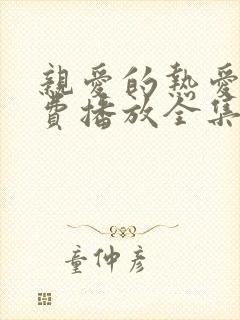 親愛的熱愛
費播放全集
童仲彥